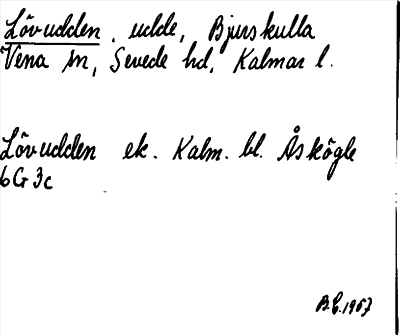 Lövudden, udde, Bjurskulla
Vena sn, Sevede hd, Kalmar l.
Lövudden ek. Kalm. bl. Åskögle
6G 3c
B.E. 1957